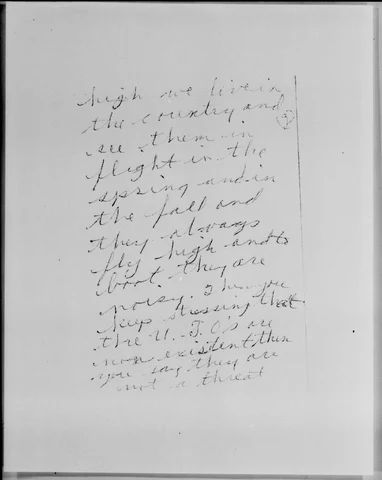 high we live in
the country and
see them in
flight in the
spring and in
the fall and
they always
fly high and to
boot. they are
noisy. Then you
keep stressing that
the U. F. O's are
non existent then
you say they are
not a threat